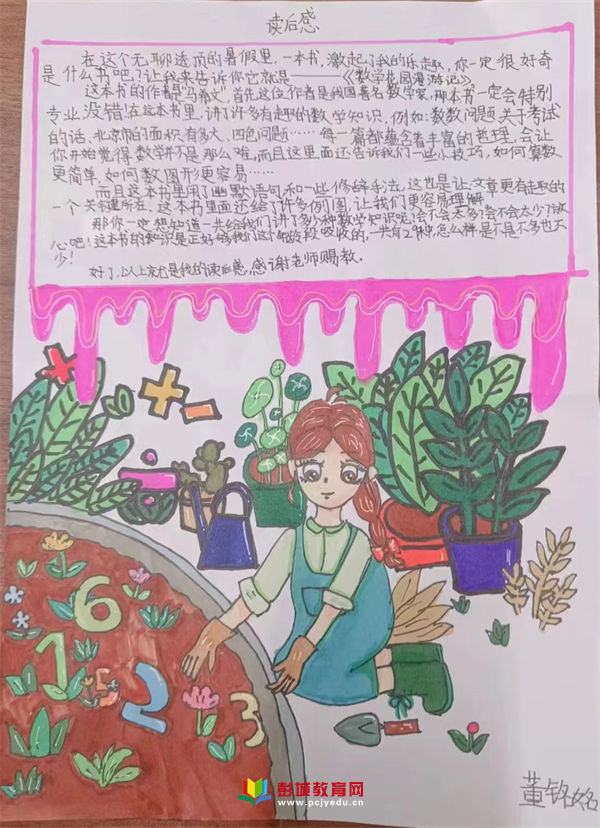 读后感
在这个无聊透顶的暑假里，一本书，激起了我的乐趣，你一定很好奇
是什么书吧？让我来告诉你它就是——《数学花园漫游记》
这本书的作者是“马希文”，首先这位作者是我国著名数学家，那本书一定会特别
专业没错！在这本书里，讲了许多有趣的数学知识，例如：数数问题关于考试
的话、北京市的面积有多大、四色问题……每一篇都蕴含着丰富的哲理，会让
你开始觉得数学并不是那么难，而且这里面还告诉我们一些小技巧，如何算数
更简单，如何数图形更容易……
而且这本书里用了幽默语句和一些修辞手法，这也是让文章更有趣的
一个关键所在，这本书里面还给了许多例图，让我们更容易理解
那你一定想知道一共给我们讲了多少种数学知识呢？会不会太多？会不会太少？放
心吧！这本书的知识是正好够我们这个年龄段吸收的，一共有29种，怎么样是不是不多也不
少！
好了，以上就是我的读后感，感谢老师赐教。
6
1
5
2
3
彭城教育网
www.pcjyedu.cn
董铭